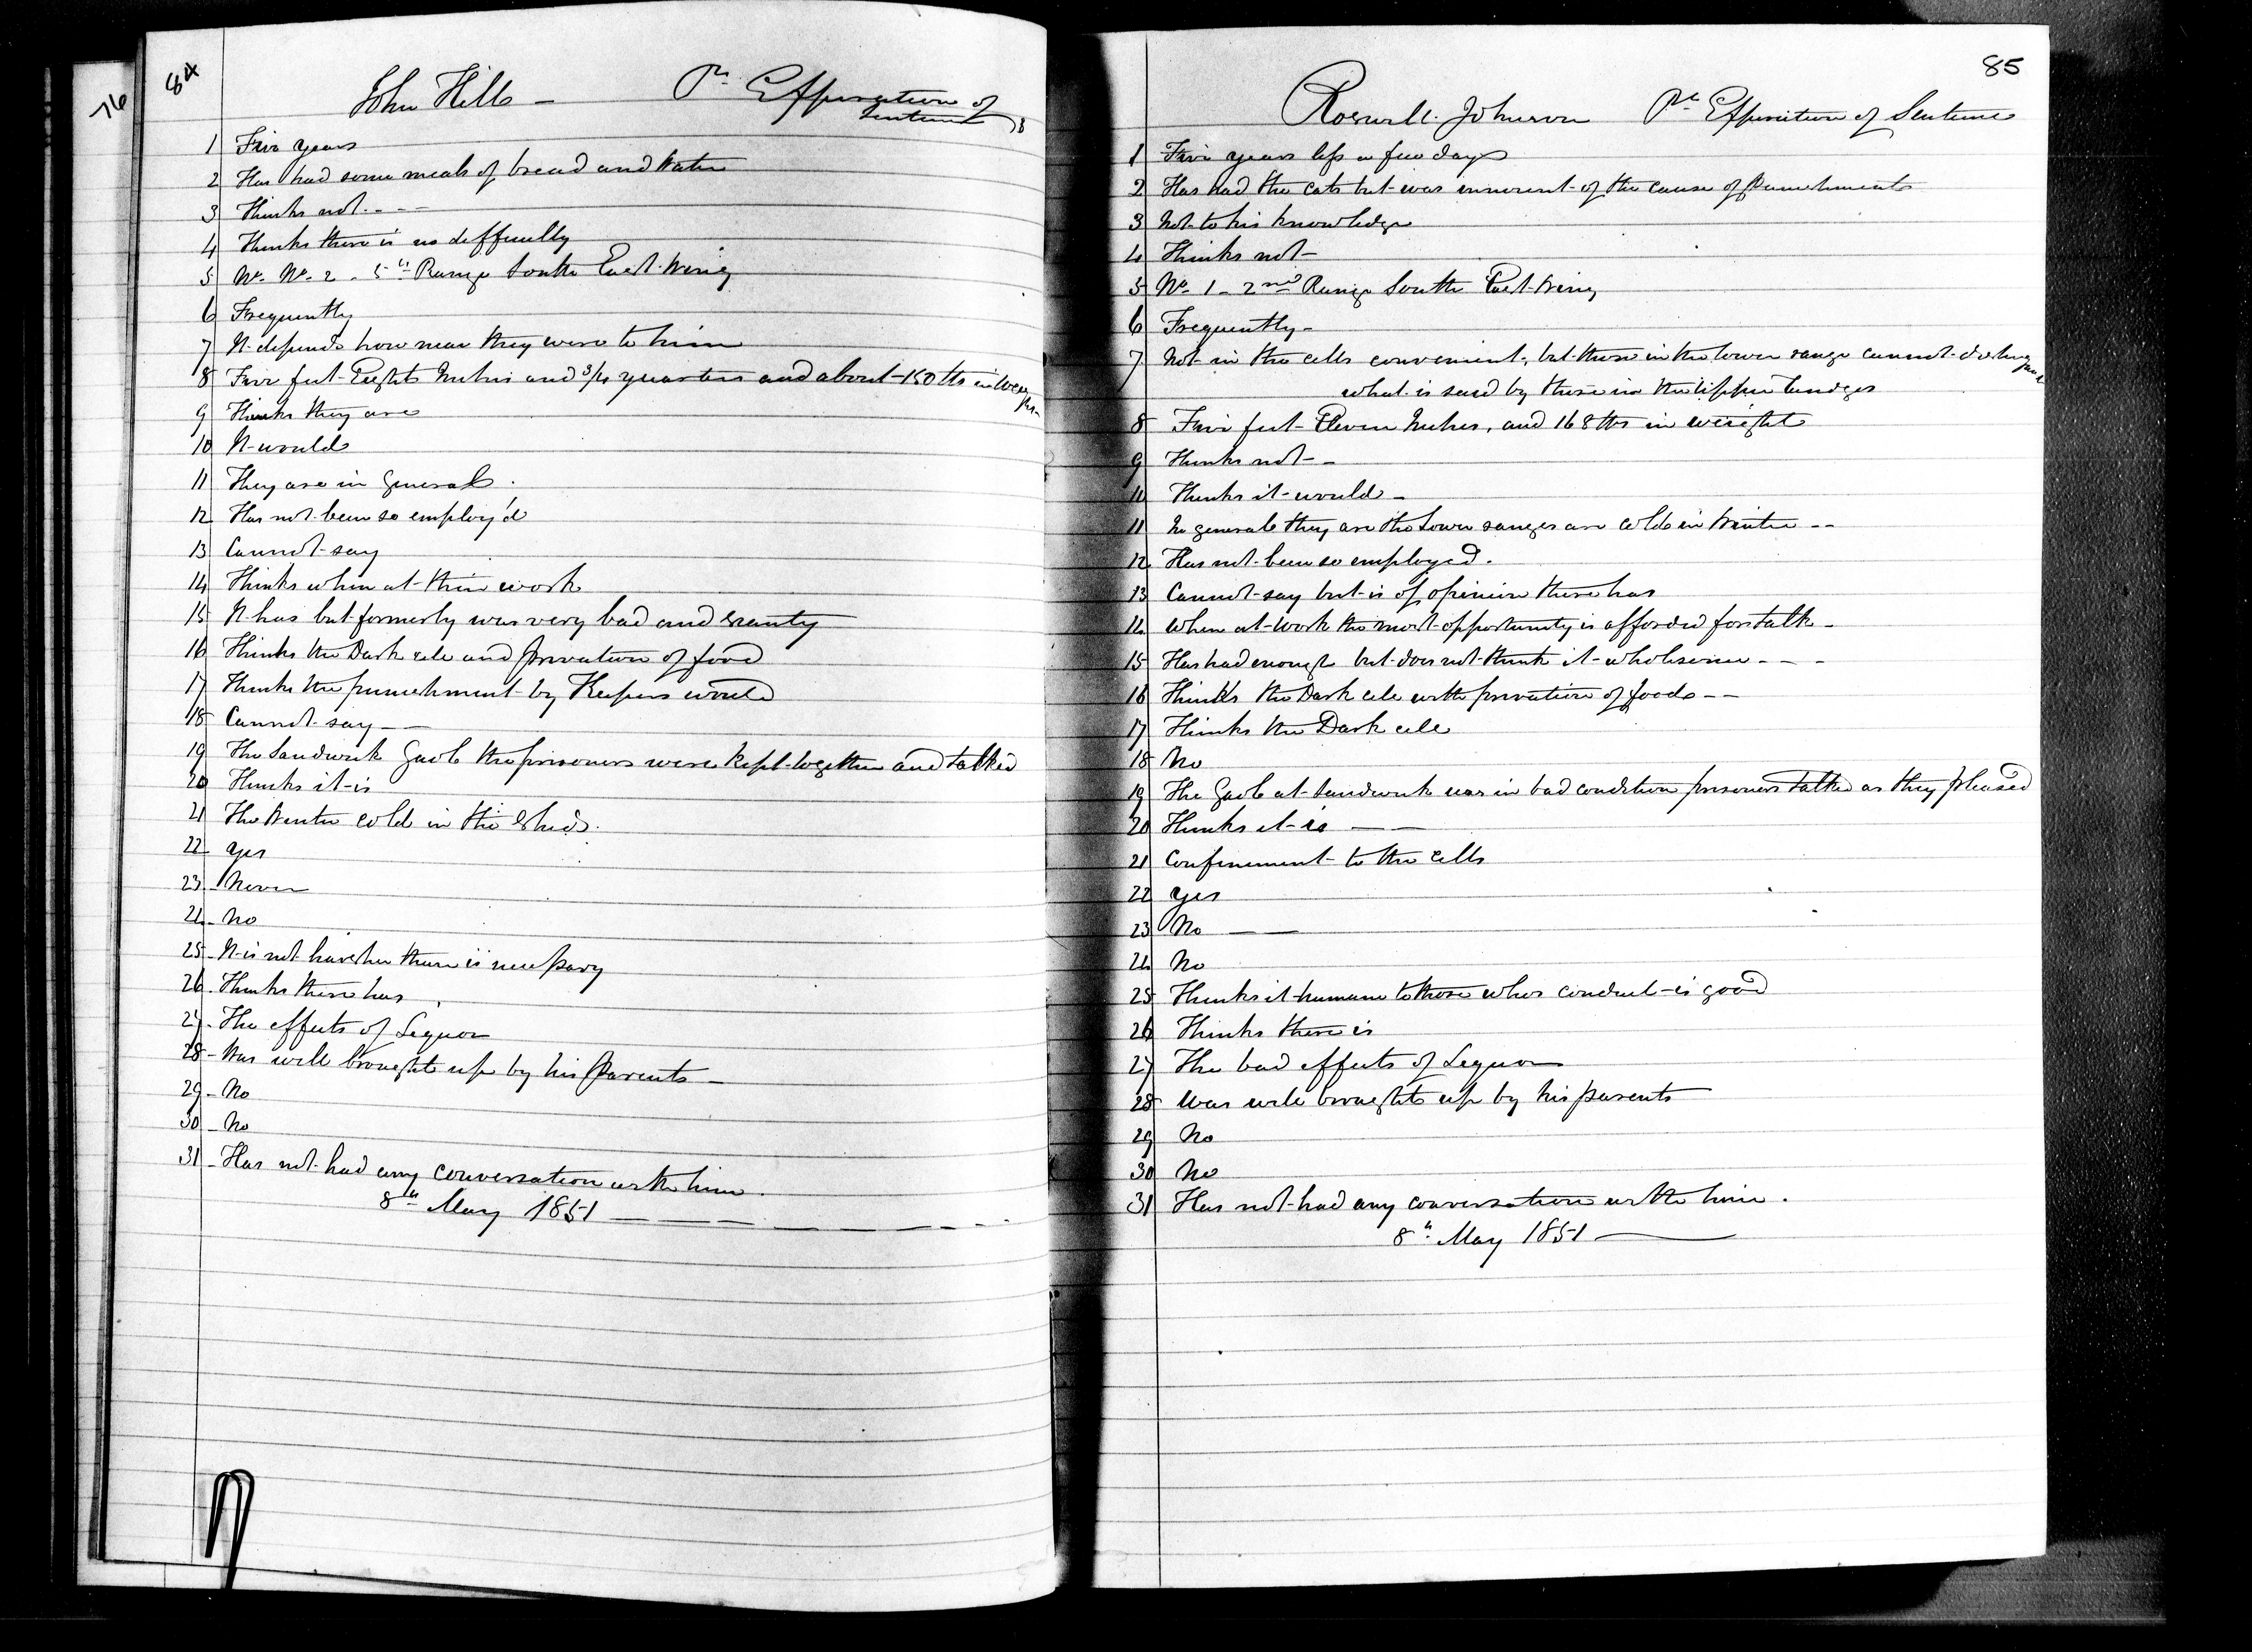 76
84
John Hills — Pr Expiration of
Sentence
1 Five years
2 Has had some meals of bread and Water
3 Thinks not - - -
4 Thinks there is no difficulty
5 No. No. 2 - 5th Range South East Wing
6 Frequently
7 It depends how near they were to him
8 Five feet Eight Inches and 3/4 quarters and about 150 lbs in
9 Thinks they are
10 It would
11 They are in General
12 Has not been so employ'd
13 Cannot say
14 Thinks when at their work
15 It has but formerly was very bad and scanty
16 Thinks the Dark cell and privation of food
17 Thinks the punishment by Keepers would
18 Cannot say — —
19 The Sandwich Gaol the prisoners were kept together and talked
20 Thinks it is
21 The Winter cold in the Sheds.
22 Yes
23 Never
24 No
25 It is not harsher than is necessary
26 Thinks there has
27 The effects of Liquor
28 Was well brought up by his Parents —
29 No
30 No
31 Has not had any conversation with him.
8th May 1851 — — — — — — —
85
Roswell Johnson Pr Expiration of Sentence
1 Five years less a few days
2 Has had the Cats but was innocent of the cause of Punishments
3 Not to his knowledge
4 Thinks not —
5 No. 1 - 2nd Range South East Wing
6 Frequently —
7 Not in the cells convenient, but those in the lower range cannot distinguish
what is said by those in the upper
8 Five feet Eleven Inches, and 168 lbs in weight
9 Thinks not — -
10 Thinks it would —
11 In general they are the Lower ranges are cold in Winter - -
12 Has not been so employed.
13 Cannot say but is of opinion there has
14 When at Work the most opportunity is afforded for talk —
15 Has had enough but does not think it wholesome - - -
16 Thinks the Dark cell with privation of food - -
17 Thinks the Dark cell
18 No
19 The Gaol at Sandwich was in bad condition prisoners talked as they pleased
20 Thinks it is — —
21 Confinement to the cells
22 Yes
23 No — —
24 No
25 Thinks it humane to those whos conduct is good
26 Thinks there is
27 The bad effects of Liquor
28 Was well brought up by his parents
29 No
30 No
31 Has not had any conversation with him.
8th May 1851 ———